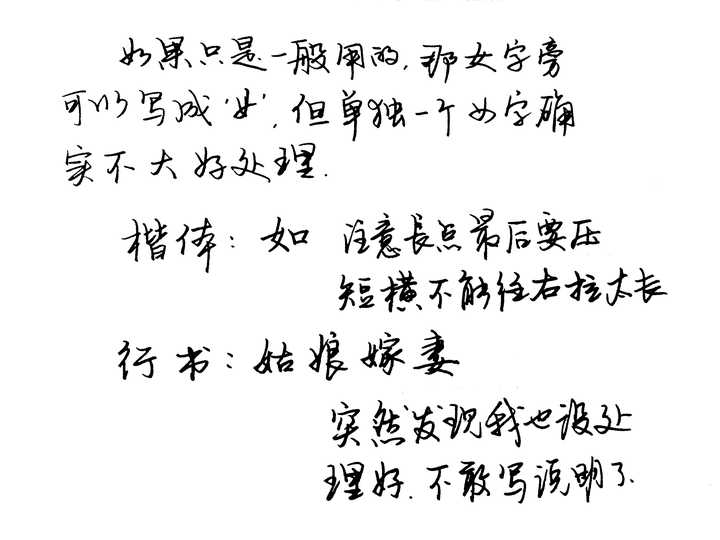 如果只是一般用的,那女字旁
可以写成'女',但单独一个女字确
实不大好处理.
楷体:如 注意長点最后要压
短横不能往右拉太长
行书:姑娘嫁妻
突然发现我也没处
理好.不敢写说明了.